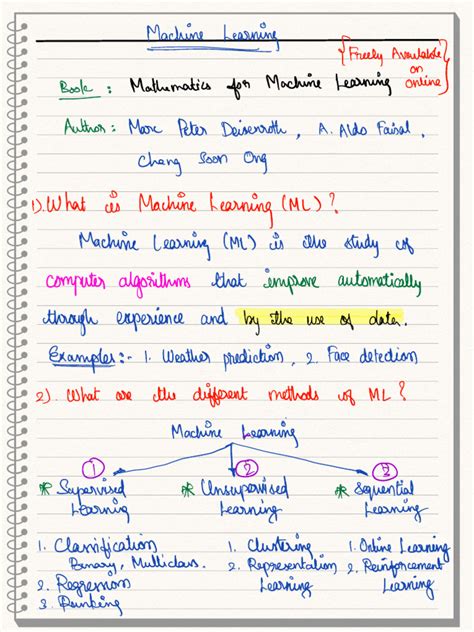 Machine Learning
{Freely Available on online}
Book : Mathematics for Machine Learning
Author : Marc Peter Deisenroth, A. Aldo Faisal,
Cheng Soon Ong
1). What is Machine Learning (ML)?
Machine Learning (ML) is the study of
computer algorithms that improve automatically
through experience and by the use of data.
Examples:- 1. Weather prediction, 2. Face detection
2). What are the different methods of ML?
Machine Learning
1 2 3
* Supervised Learning
* Unsupervised Learning
* Sequential Learning
1. Classification
Binary, Multiclass.
2. Regression
3. Ranking
1. Clustering
2. Representation Learning
1. Online Learning
2. Reinforcement Learning